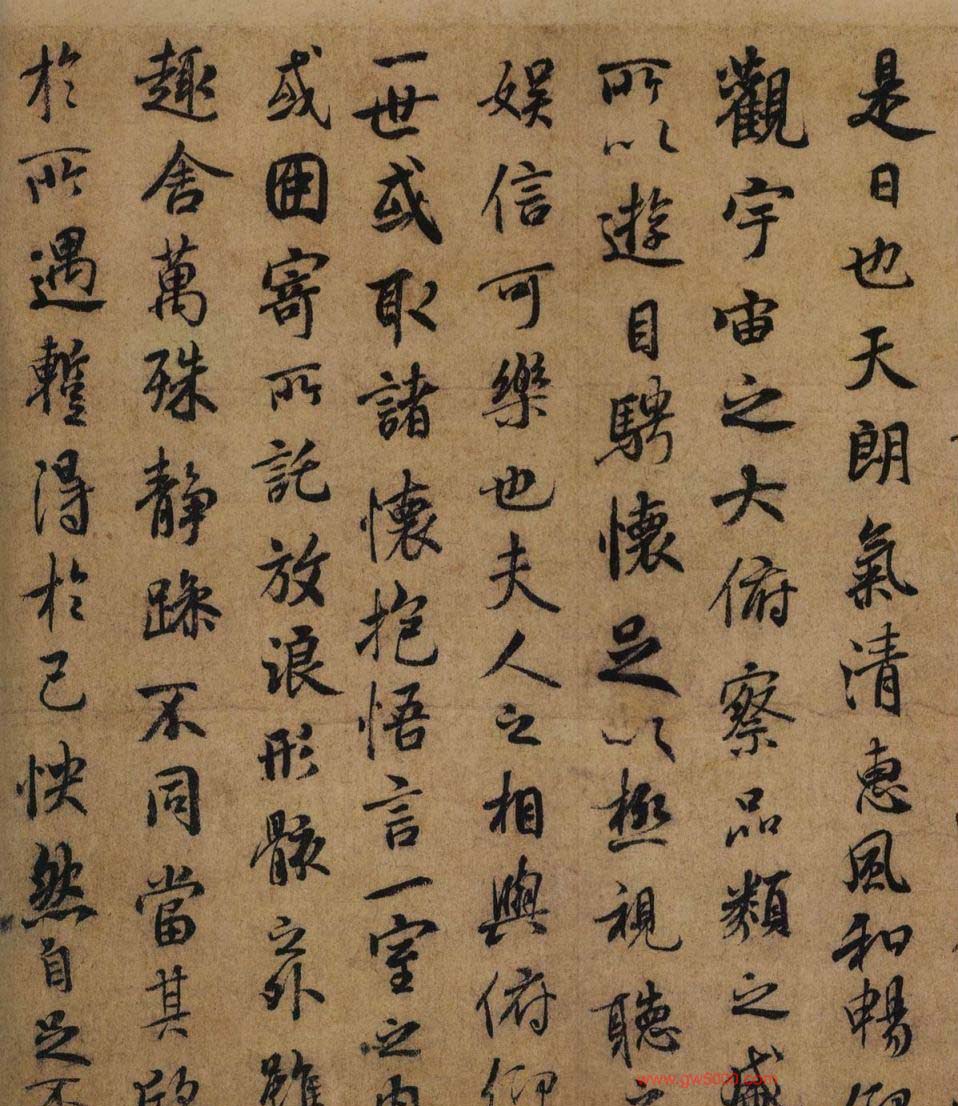 是日也天朗氣清惠風和暢仰
觀宇宙之大俯察品類之盛
所以遊目騁懷足以極視聽
娛信可樂也夫人之相與俯仰
一世或取諸懷抱悟言一室之內
或因寄所託放浪形骸之外雖
趣舍萬殊靜躁不同當其欣
於所遇暫得於己怏然自足不